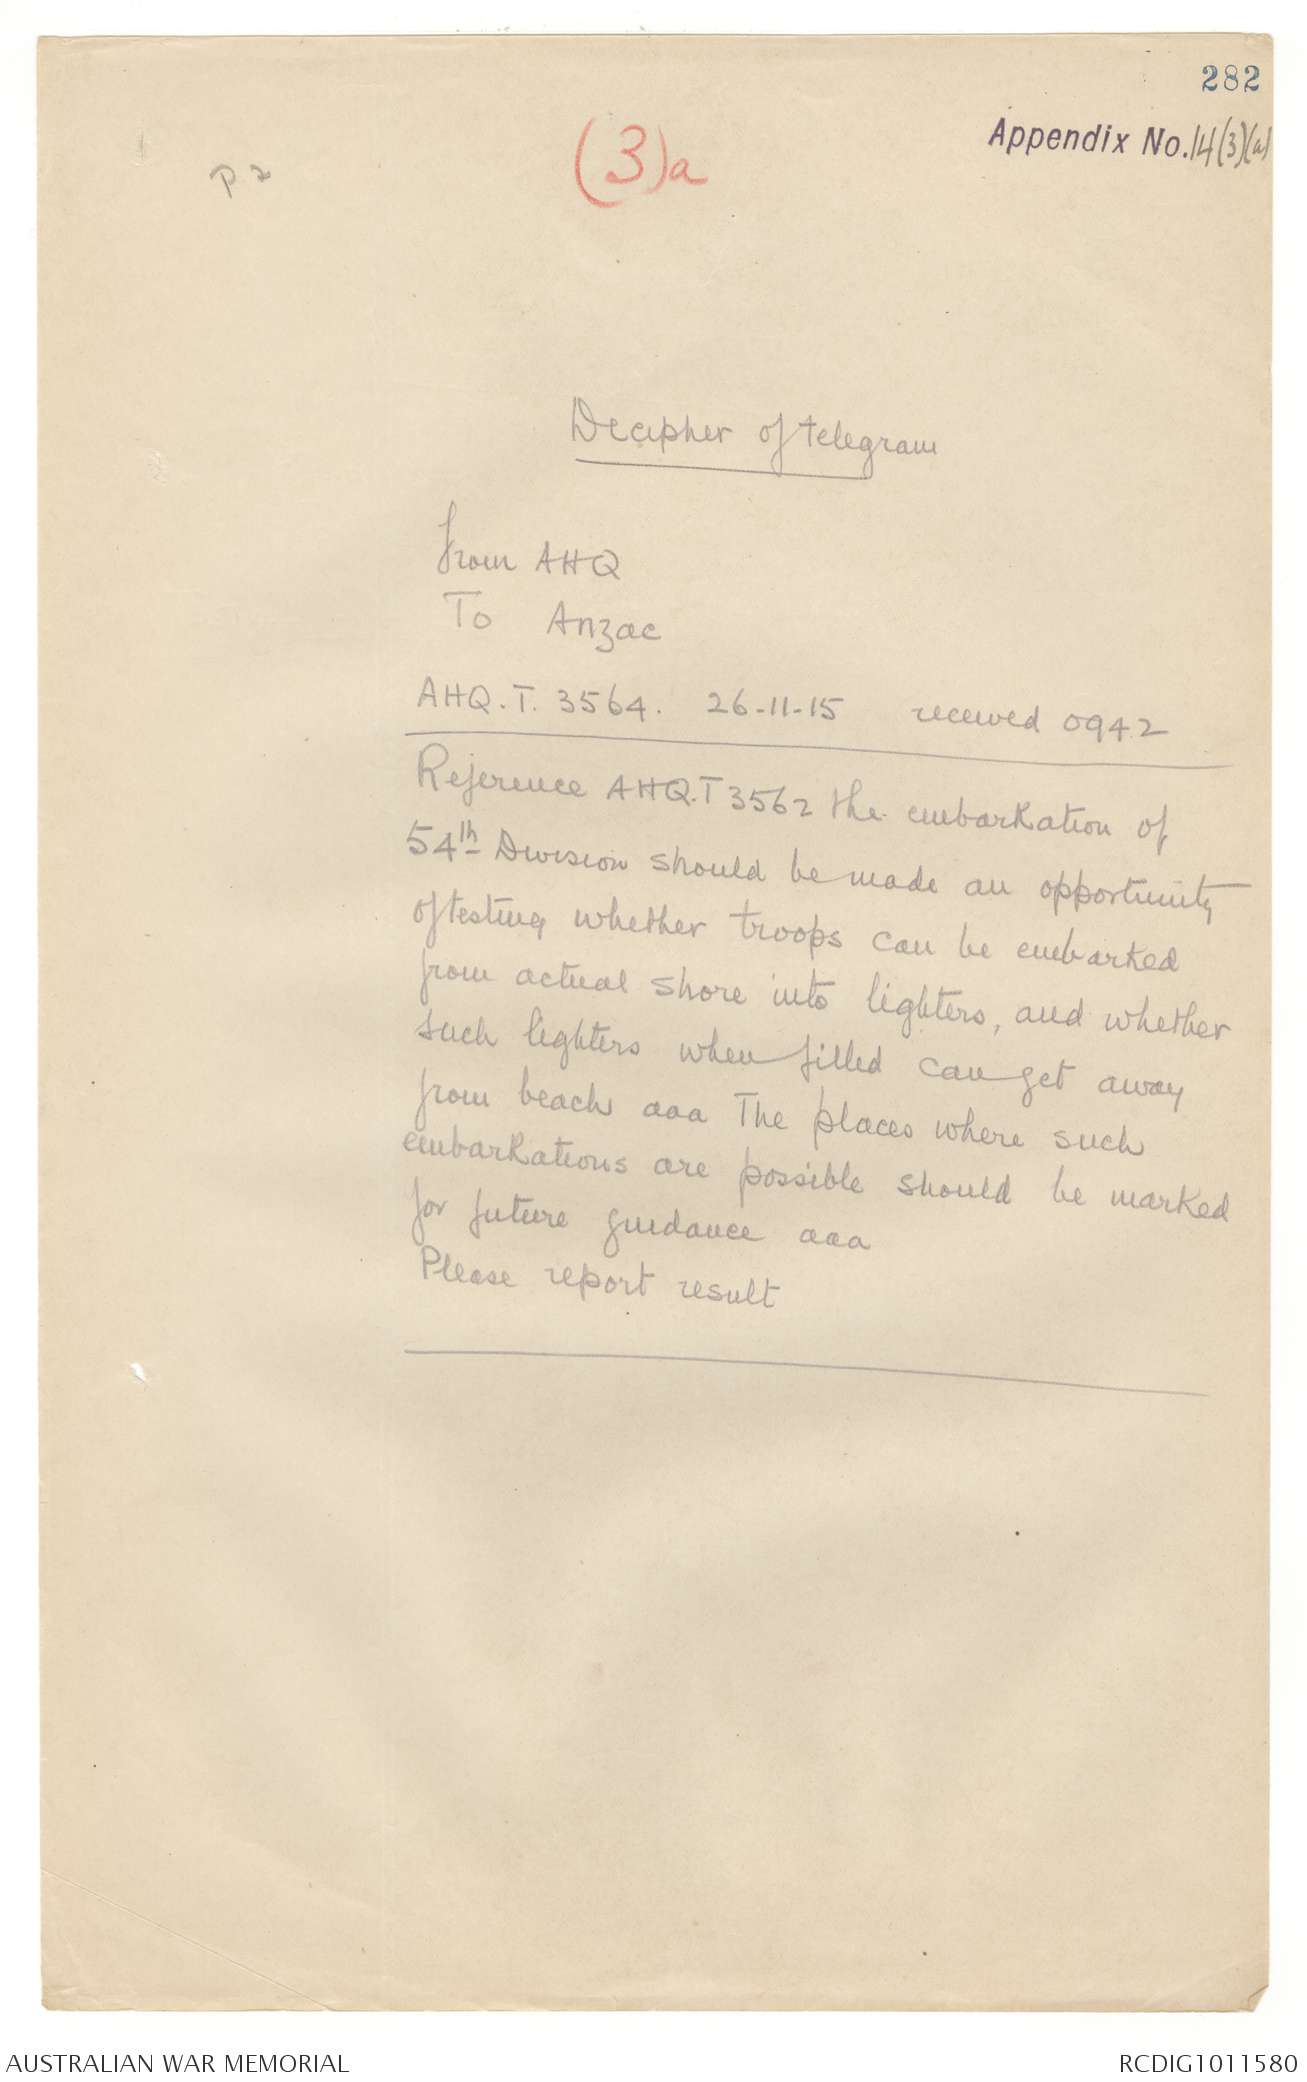 282
Appendix No. 14(3)(a)
(3)a
p 2
Decipher of telegram
from AHQ
To Anzac
AHQ.T. 3564. 26-11-15 received 0942
Reference AHQ.T 3562 the embarkation of
54th Division should be made an opportunity
of testing whether troops can be embarked
from actual shore into lighters, and whether
such lighters when filled can get away
from beach aaa The places where such
embarkations are possible should be marked
for future guidance aaa
Please report result
AUSTRALIAN WAR MEMORIAL
RCDIG1011580